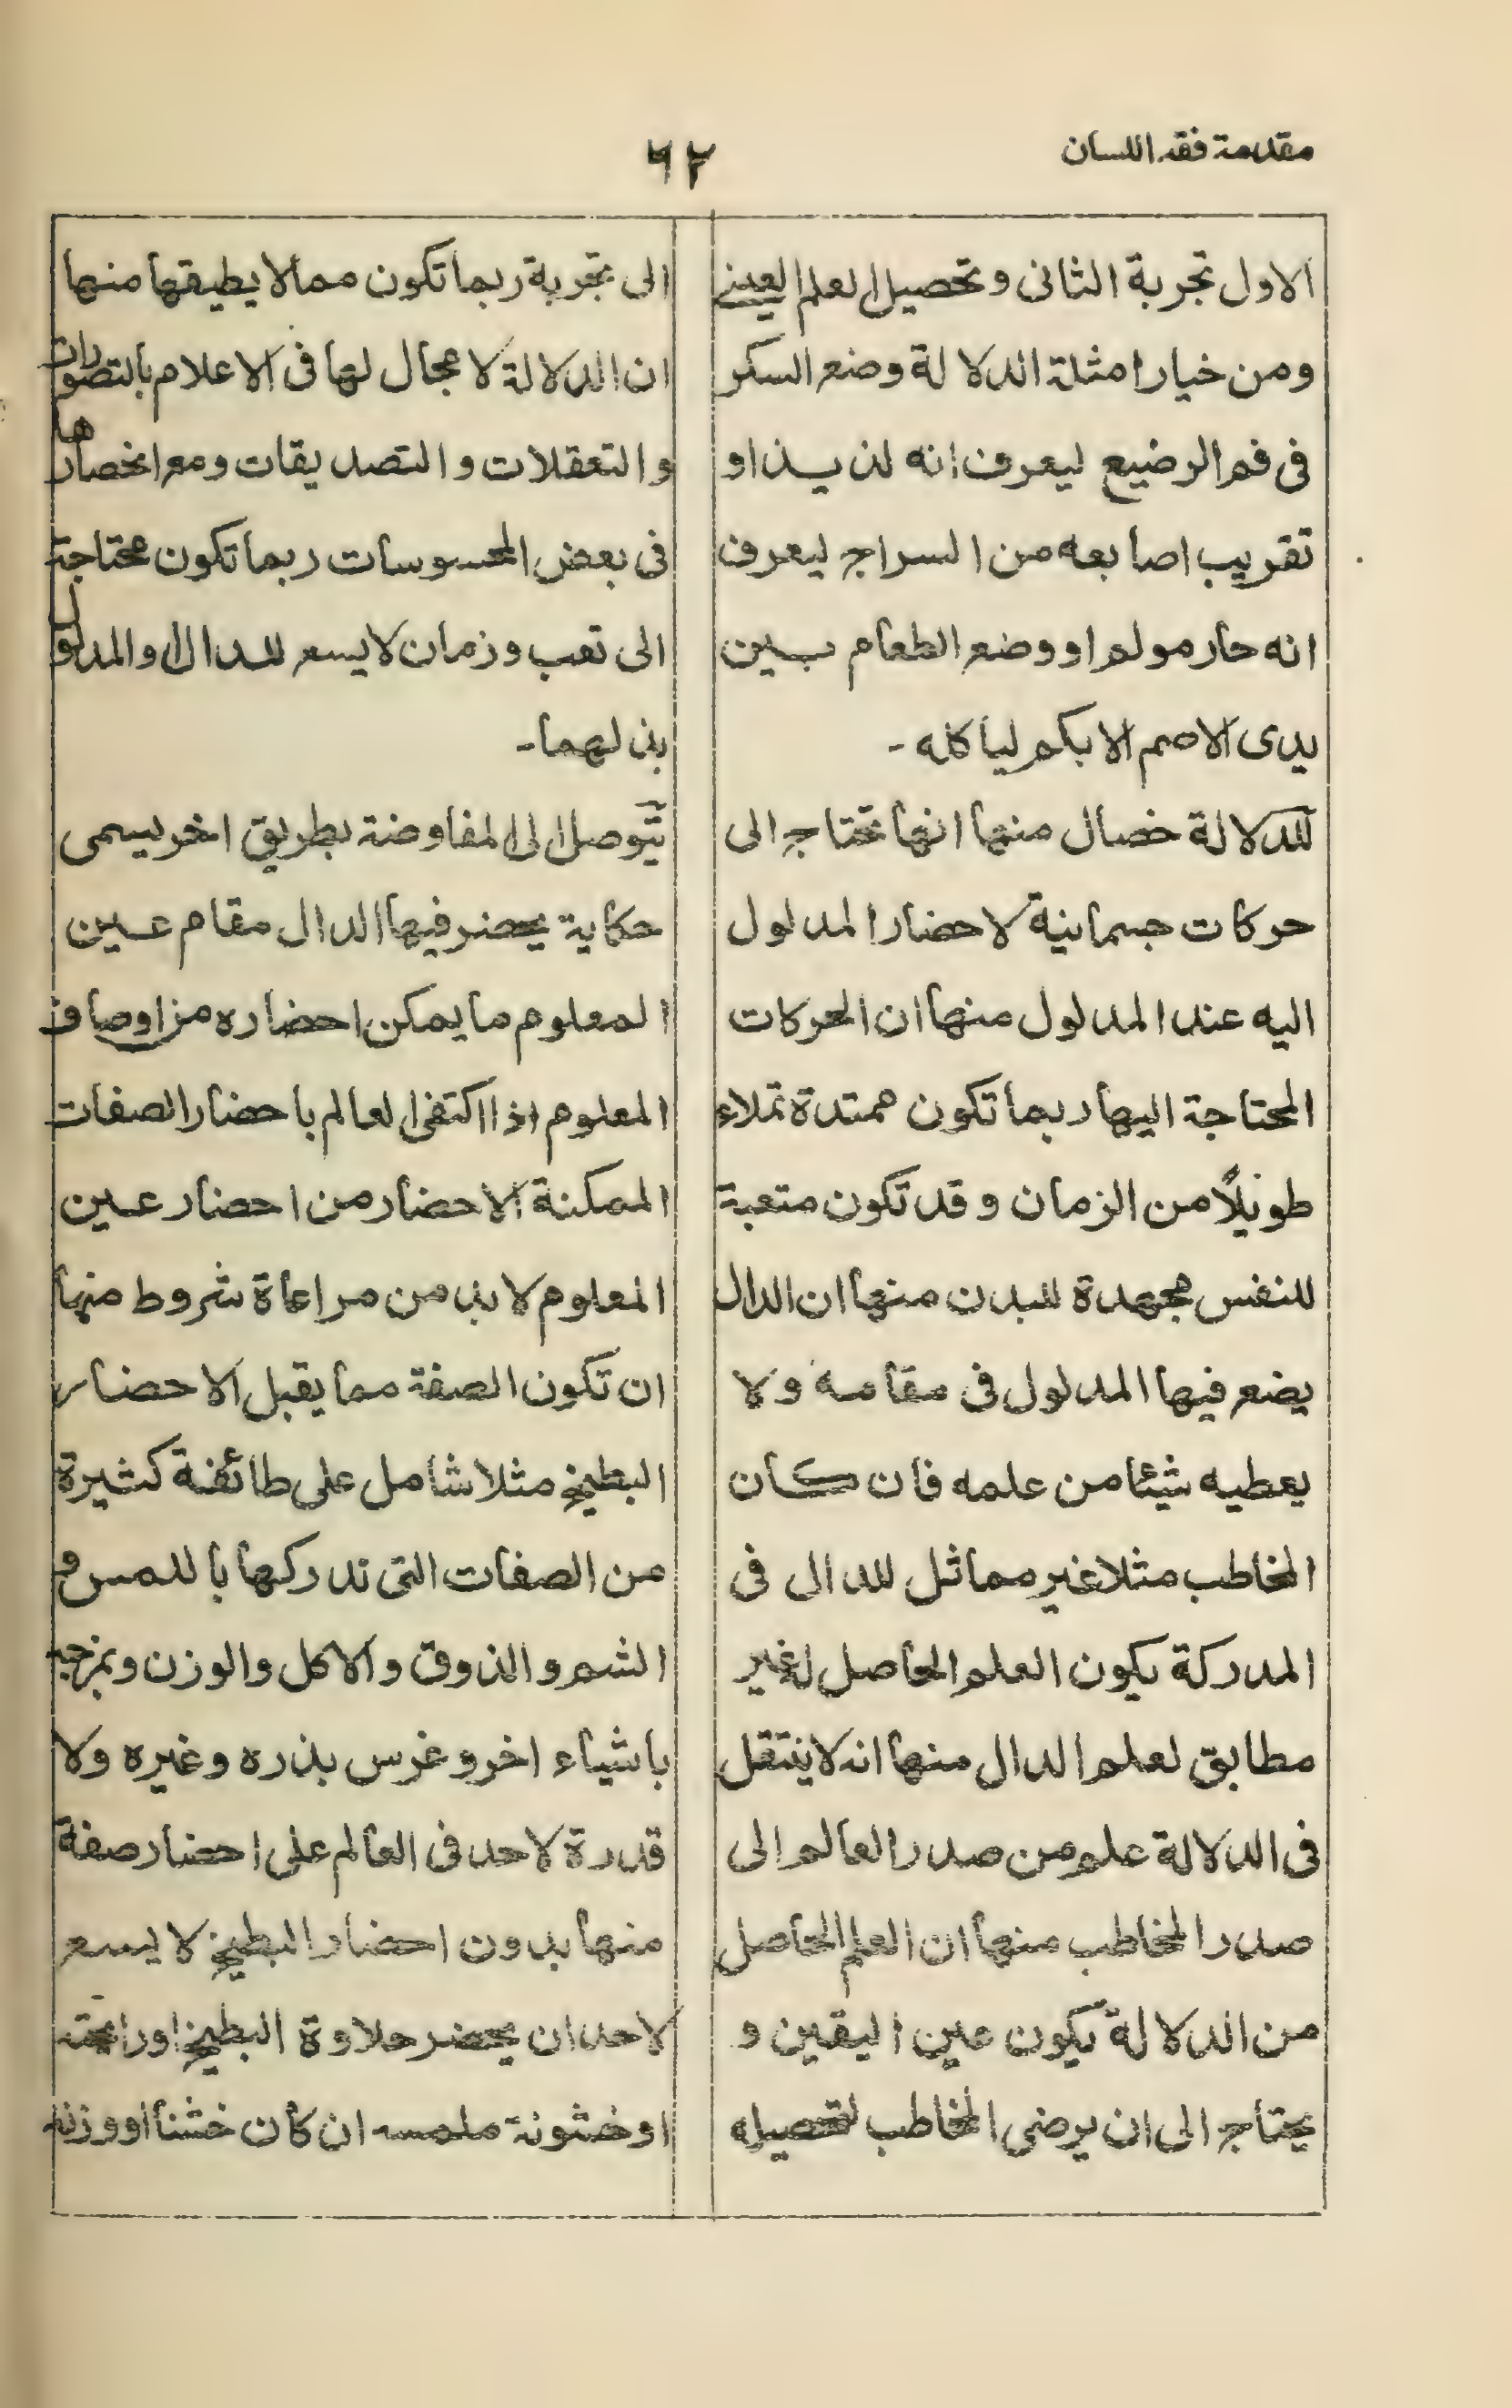 مقدمة فقه اللسان
٦٢
الاول تجربة الثانى وتحصيل العلم العينى
ومن خيار امثلة الدلالة وضع السكر
فى فم الرضيع ليعرف انه لذيذ او
تقريب اصابعه من السراج ليعرف
انه حار مولم او وضع الطعام بين
يدى الاصم الابكم لياكله -
للدلالة خصال منها انها تحتاج الى
حركات جسمانية لاحضار المدلول
اليه عند المدلول منها ان الحركات
المحتاجة اليها ربما تكون ممتدة تملاء
طويلاً من الزمان وقد تكون متعبة
للنفس مجهدة للبدن منها ان الدال
يضع فيها المدلول فى مقامه ولا
يعطيه شيئا من علمه فان كان
المخاطب مثلا غير مماثل للدال فى
المدركة يكون العلم الحاصل له غير
مطابق لعلم الدال منها انه لا ينتقل
فى الدلالة علم من صدر العالم الى
صدر المخاطب منها ان العلم الحاصل
من الدلالة يكون عين اليقين و
يحتاج الى ان يرضى المخاطب لتحصيله
الى تجربة ربما تكون مما لا يطيقها منها
ان الدلالة لا مجال لها فى الاعلام بالتصورات
و التعقلات و التصديقات ومع انحصارها
فى بعض المحسوسات ربما تكون محتاجة
الى تعب وزمان لا يسع للدال والمدلول
بذلهما-
يتوصل الى المفاوضة بطريق اخر يسمى
حكاية يحضر فيها الدال مقام عين
المعلوم ما يمكن احضاره من اوصاف
المعلوم اذا اكتفى العالم باحضار الصفات
الممكنة الاحضار من احضار عين
المعلوم لابد من مراعاة شروط منها
ان تكون الصفة مما يقبل الاحضار
البطيخ مثلا شامل على طائفة كثيرة
من الصفات التى ندركها باللمس و
الشم و الذوق والاكل والوزن وبمزجه
باشياء اخر وغرس بذره وغيره ولا
قدرة لاحد فى العالم على احضار صفة
منها بدون احضار البطيخ لا يسع
لاحد ان يحضر حلاوة البطيخ او رائحته
او خشونة ملمسه ان كان خشنا او وزنه